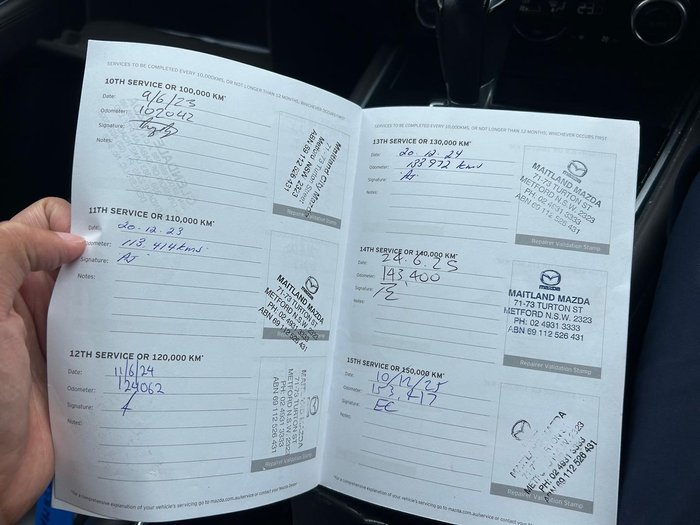 SERVICES TO BE COMPLETED EVERY 10,000KMS, OR NOT LONGER THAN 12 MONTHS, WHICHEVER OCCURS FIRST
10TH SERVICE OR 100,000 KM*
Date: 9/6/23
Odometer: 102042
Signature:
Notes:
Maitland City Mazda
71-73 Turton Street
Metford NSW 2323
ABN 69 112 526 431
Repairer Validation Stamp
11TH SERVICE OR 110,000 KM*
Date: 20.12.23
Odometer: 113,414 kms.
Signature: AJ
Notes:
mazda
MAITLAND MAZDA
71-73 TURTON ST
METFORD N.S.W. 2323
PH: 02 4931 3333
ABN 69 112 526 431
Repairer Validation Stamp
12TH SERVICE OR 120,000 KM*
Date: 11/6/24
Odometer: 124062
Signature:
Notes:
MAZDA
71-73 TURTON ST
METFORD N.S.W. 2323
PH: 02 4931 3333
ABN 69 112 526 431
Repairer Validation Stamp
*For a comprehensive explanation of your vehicle's servicing go to mazda.com.au/service or contact your Mazda Dealer
SERVICES TO BE COMPLETED EVERY 10,000KMS, OR NOT LONGER THAN 12 MONTHS, WHICHEVER OCCURS FIRST
13TH SERVICE OR 130,000 KM*
Date: 20.12.24
Odometer: 133972 kms
Signature: AJ
Notes:
mazda
MAITLAND MAZDA
71-73 TURTON ST
METFORD N.S.W. 2323
PH: 02 4931 3333
ABN 69 112 526 431
Repairer Validation Stamp
14TH SERVICE OR 140,000 KM*
Date: 24.6.25
Odometer: 143,400
Signature:
Notes:
mazda
MAITLAND MAZDA
71-73 TURTON ST
METFORD N.S.W. 2323
PH: 02 4931 3333
ABN 69 112 526 431
Repairer Validation Stamp
15TH SERVICE OR 150,000 KM*
Date: 10/12/25
Odometer:
Signature: EC
Notes:
PH: 02 4931 3333
ABN 69 112 526 431
Repairer Validation Stamp
*For a comprehensive explanation of your vehicle's servicing go to mazda.com.au/service or contact your Mazda Dealer